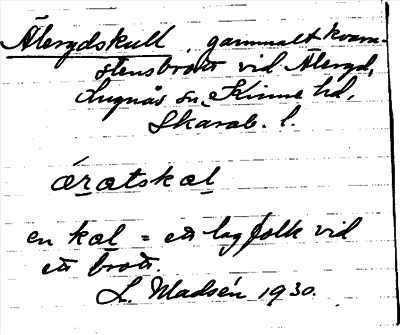 Älerydskull, gammalt kvarn-
stensbrott vid Äleryd,
Lugnås sn, Kinne hd,
Skarab. l.
áratskal
en kal = ett lag folk vid
ett brott.
L. Madsén 1930.